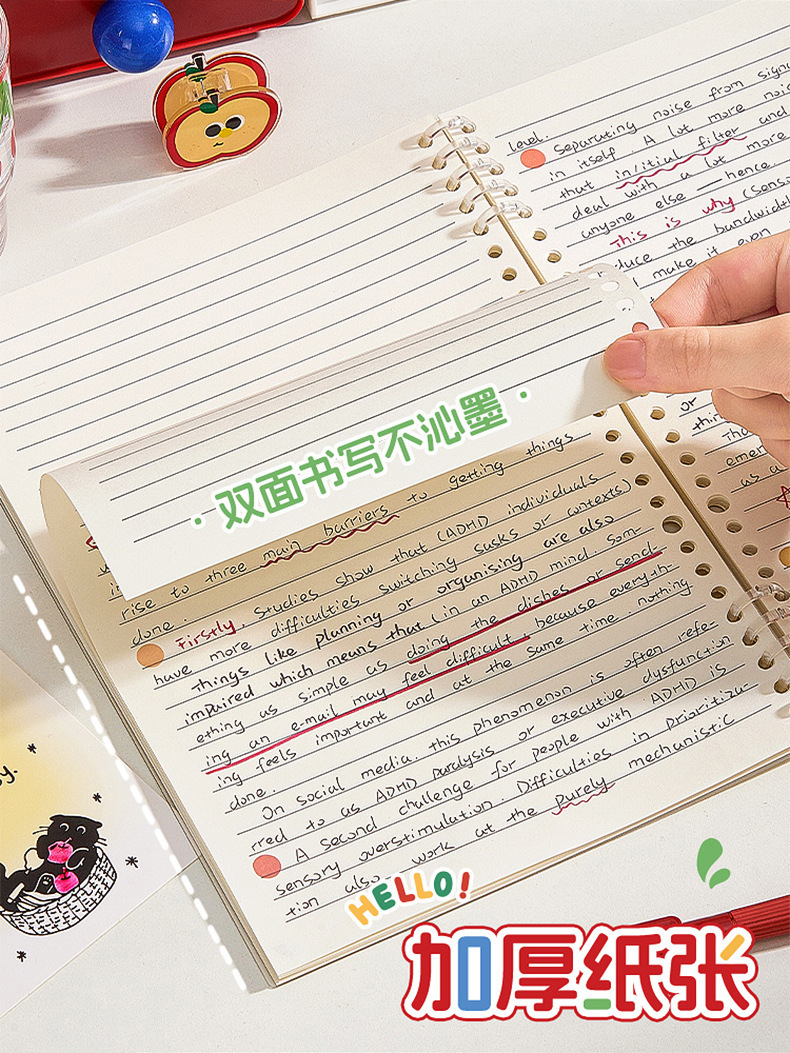 level.
Separating noise from
in itself. A lot more
that in/itial filter and
deal with a lot more
anyone else — hence.
This is why
the bandwidth
make it even
or
as a
双面书写不沁墨
to getting things
rise to three main barriers
done. studies show that (ADHD individuals
Firstly,
have more difficulties switching tasks or contexts)
things like planning or organising are also
impaired which means that (in an ADHD mind. Som-
ething as simple as doing the dishes or send-
ing an e-mail may feel difficult because everyth-
ing feels important and at the same time nothing
done.
On social media, this phenomenon is often refe-
rred to as ADHD paralysis or executive dysfunction
A second challenge for people with ADHD is
sensory overstimulation. Difficulties in prioritiza-
tion also work at the purely mechanistic
HELLO!
加厚纸张